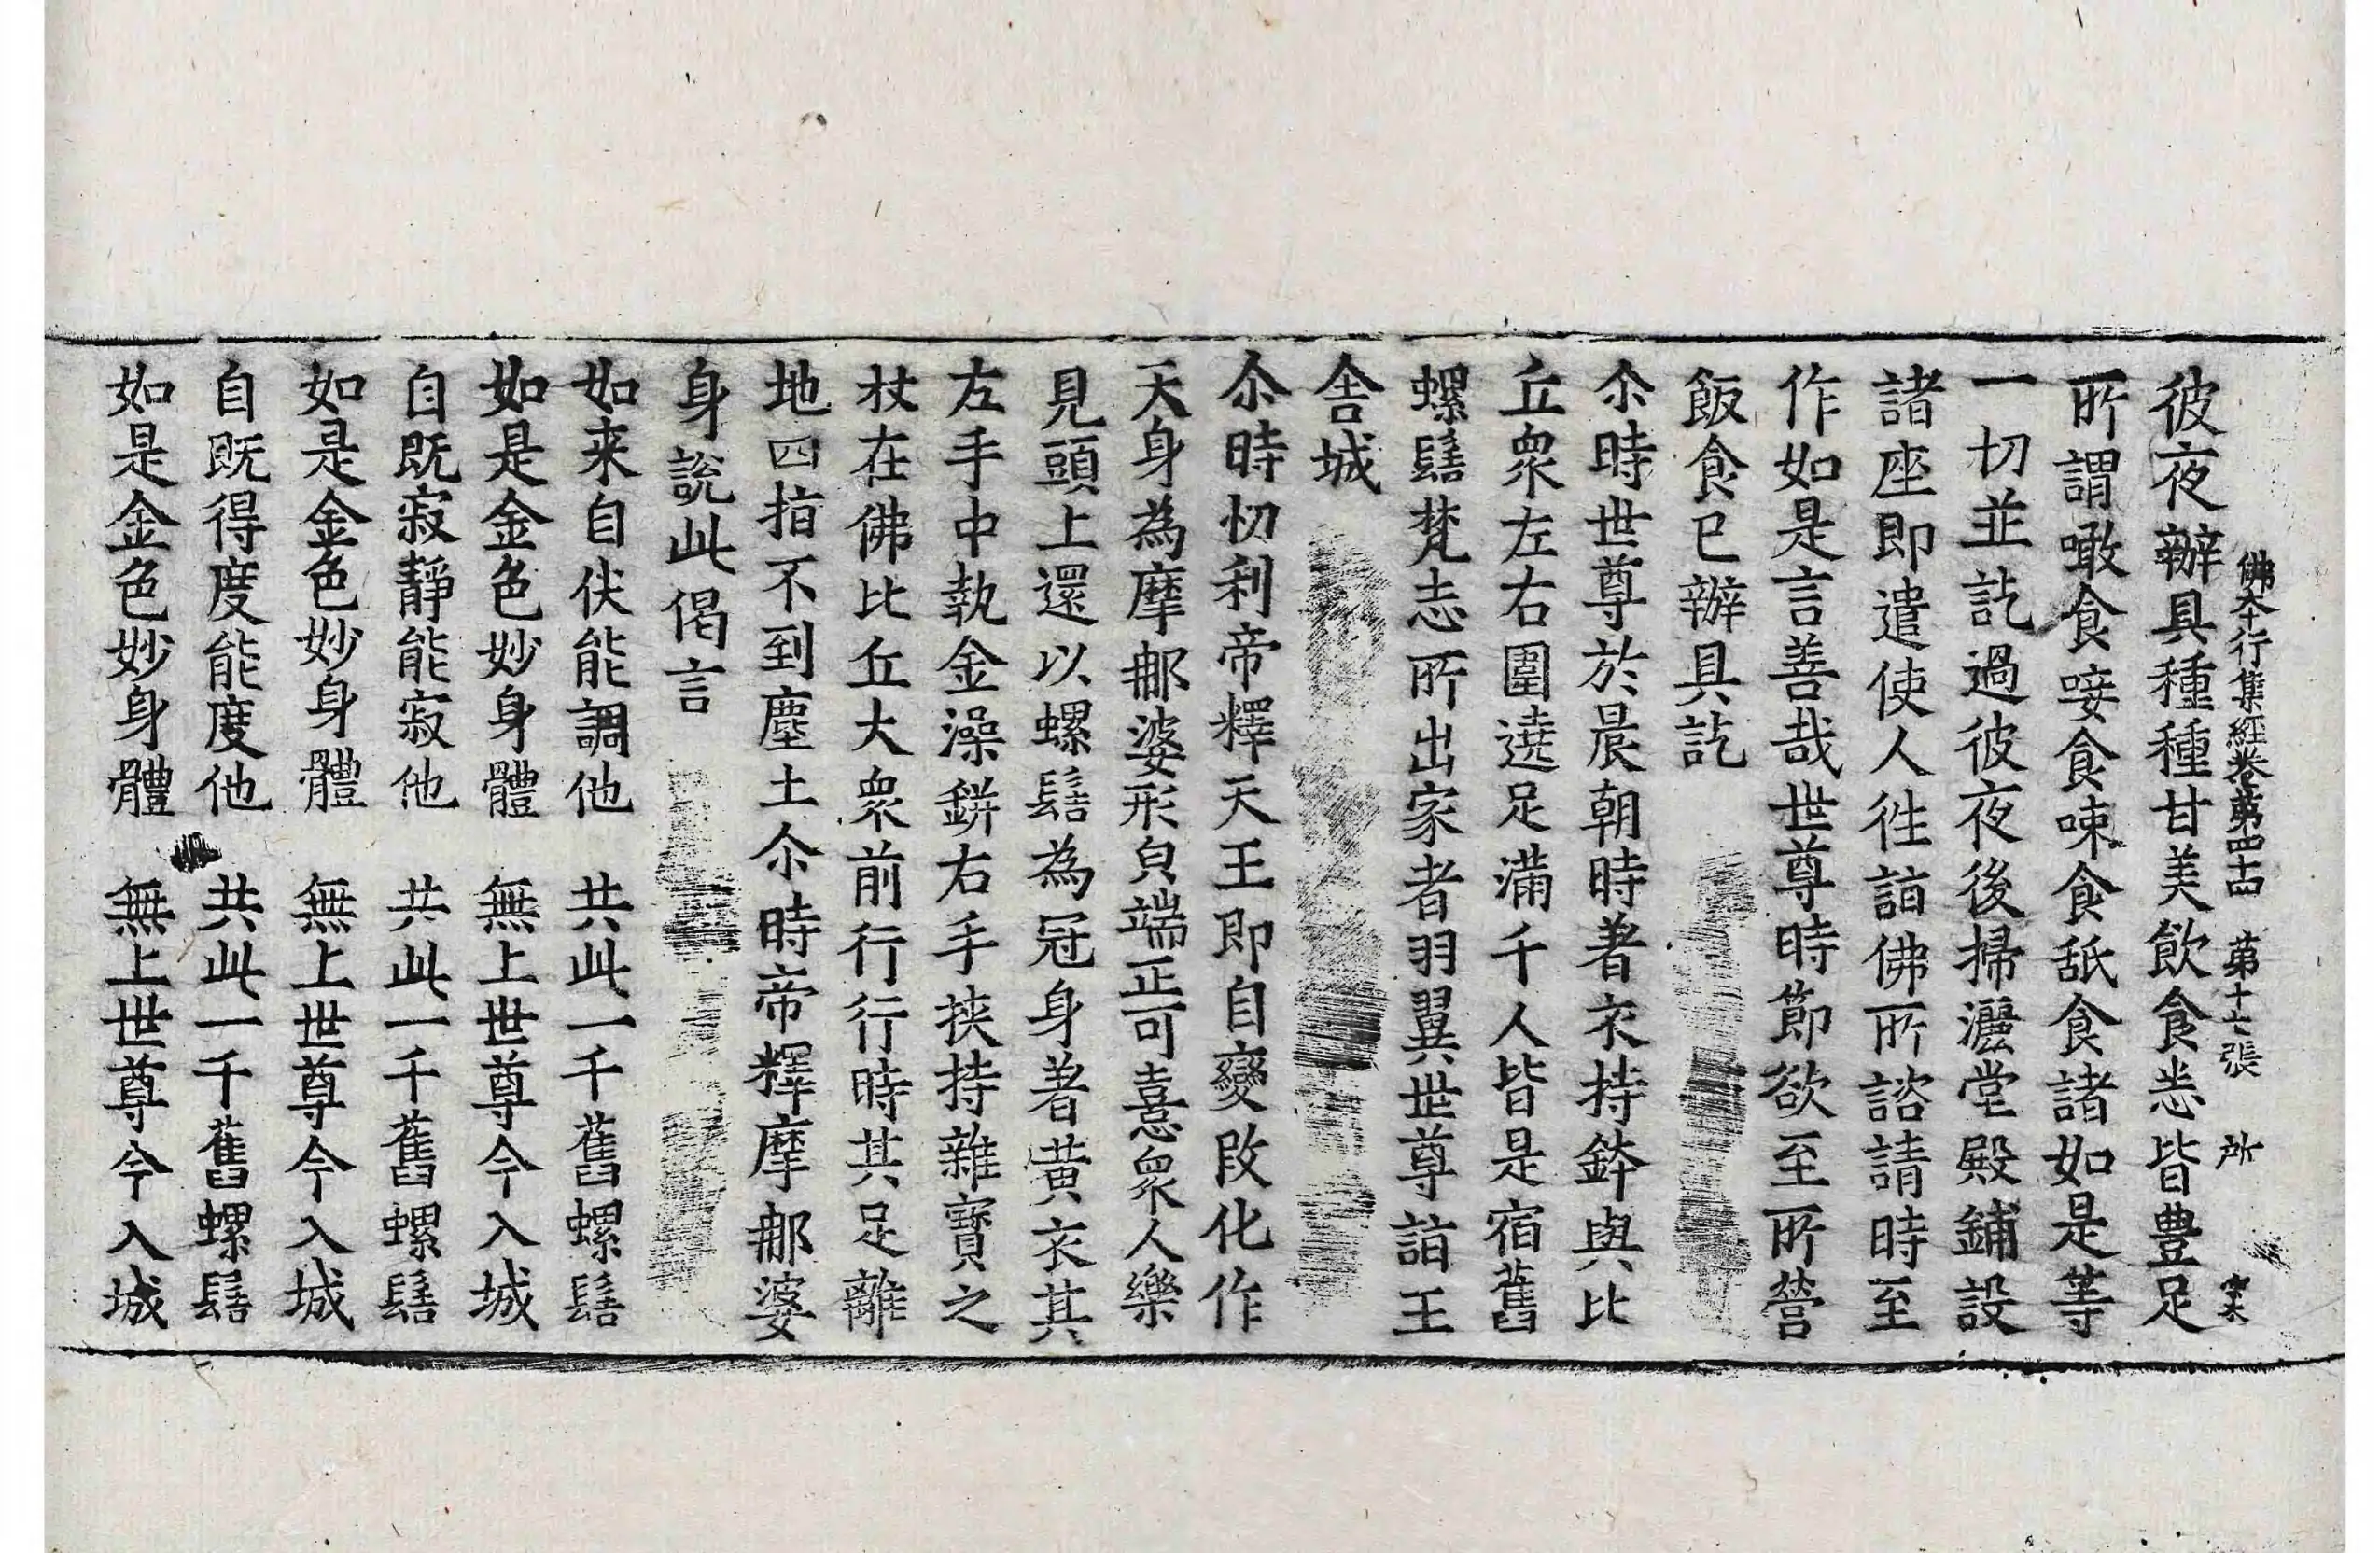 佛本行集經卷第四十四 第十七張 所
彼夜辦具種種甘美飲食悉皆豊足
所謂噉食唼食唻食舐食諸如是等
一切並訖過彼夜後掃灑堂殿鋪設
諸座即遣使人徃詣佛所諮請時至
作如是言善哉世尊時節欲至所營
飯食已辦具訖
尒時世尊於晨朝時著衣持鉢與比
丘衆左右圍遶足滿千人皆是宿舊
螺髻梵志所出家者羽翼世尊詣王
舎城
尒時忉利帝釋天王即自變改化作
天身為摩那婆形㒵端正可憙衆人樂
見頭上還以螺髻為冠身著黃衣其
左手中執金澡缾右手挾持雜寶之
杖在佛比丘大衆前行行時其足離
地四指不到塵土尒時帝釋摩那婆
身說此偈言
如来自伏能調他 共此一千舊螺髻
如是金色妙身體 無上世尊今入城
自既寂靜能寂他 共此一千舊螺髻
如是金色妙身體 無上世尊今入城
自既得度能度他 共此一千舊螺髻
如是金色妙身體 無上世尊今入城